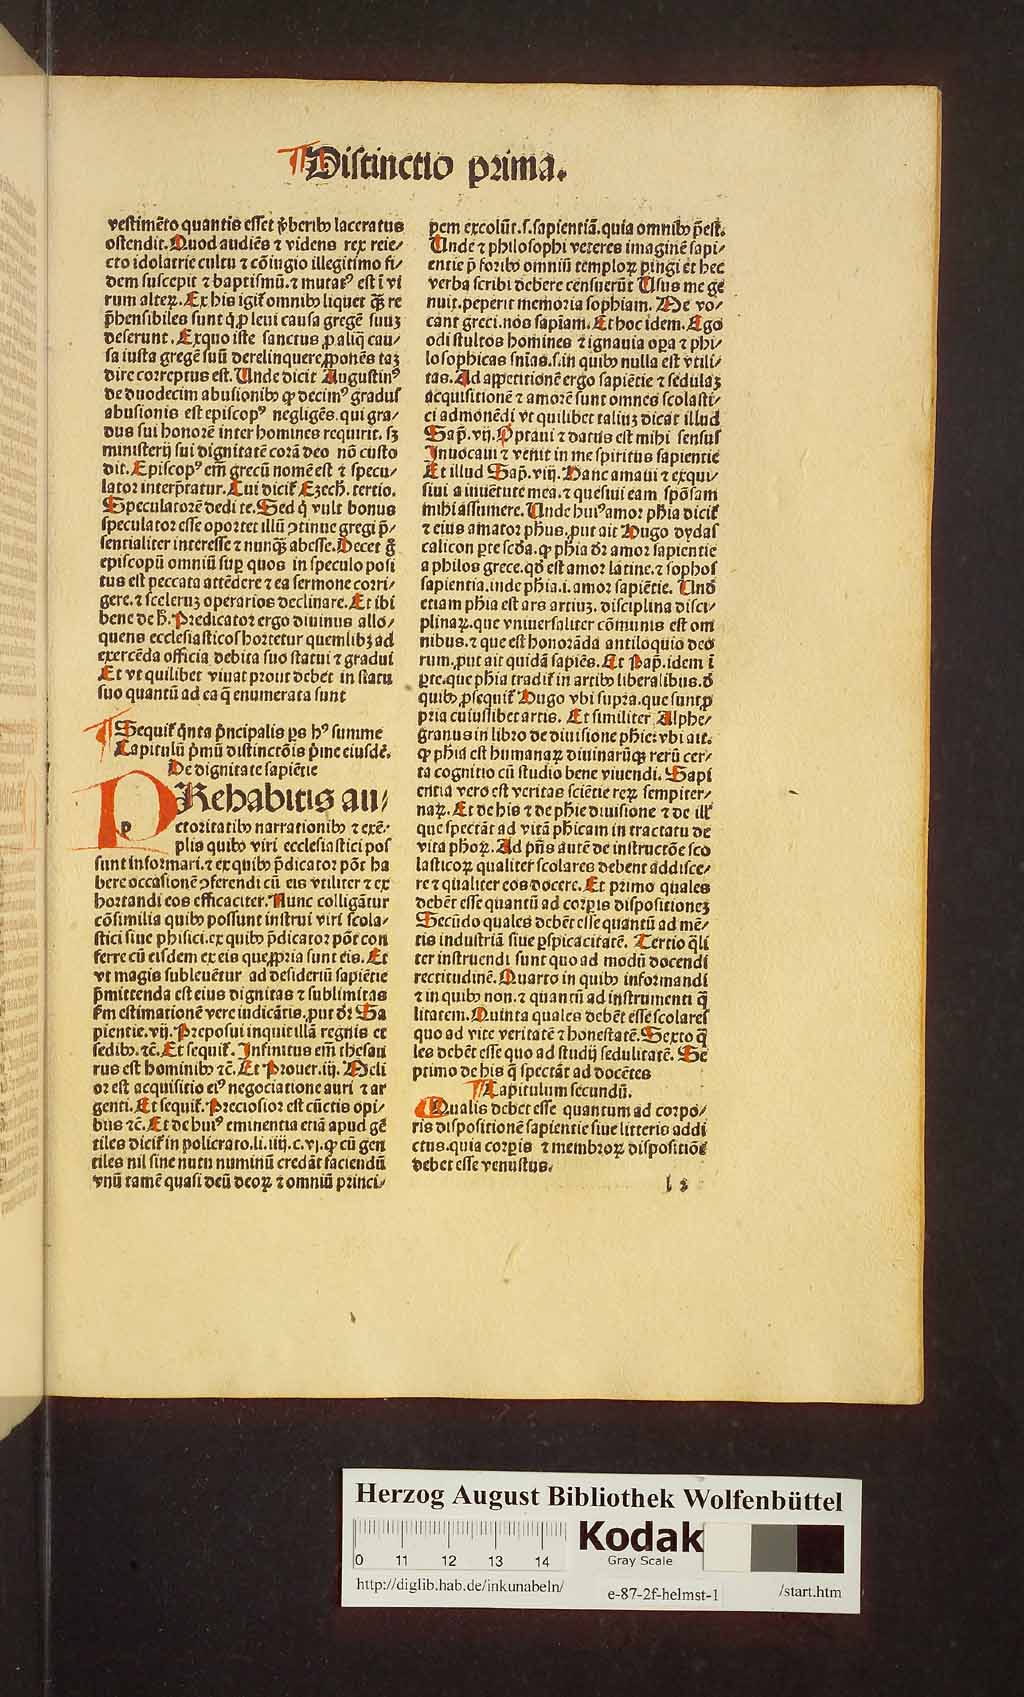 Distinctio prima.
vestimẽto quantis esset ṽberibꝰ laceratus
ostendit. Quod audiẽs ⁊ videns rex reie-
cto idolatrie cultu ⁊ cõiugio illegitimo fi-
dem suscepit ⁊ baptismũ. ⁊ mutatꝰ est ĩ vi
rum alteꝝ. Ex his igit᷑ omnibꝰ liquet qꝫ re
p̃hensibiles sunt q̇ ꝓ leui causa gregẽ suuꝫ
deserunt. Ex quo iste sanctus ꝓ aliq̃ cau-
sa iusta gregẽ suũ derelinquere ꝓponẽs taꝫ
dire correptus est. Unde dicit Augustinꝰ
de duodecim abusionibꝰ ꝙ decimꝰ gradus
abusionis est episcopꝰ negligẽs. qui gra-
dus sui honorẽ inter homines requirit. sꝫ
ministerij sui dignitatẽ corã deo nõ custo
dit. Episcopꝰ em̃ grecũ nomẽ est ⁊ specu-
lator interp̃tatur. Cui dicit᷑ Ezech. tertio.
Speculatorẽ dedi te. Sed q̇ vult bonus
speculator esse oportet illũ ↄtinue gregi p̃-
sentialiter interesse ⁊ nunqꝫ abesse. Decet g̃
episcopũ omniũ suꝑ quos in speculo posi
tus est peccata attẽdere ⁊ ea sermone corri-
gere. ⁊ sceleruꝫ operarios declinare. Et ibi
bene de h̃. Predicator ergo diuinus allo-
quens ecclesiasticos hortetur quemlibꝫ ad
exercẽda officia debita suo statui ⁊ gradui
Et vt quilibet viuat prout debet in statu
suo quantũ ad ea q̃ enumerata sunt
Sequit᷑ q̇nta p̃ncipalis ꝑs hꝰ summe
Capitulũ p̃mũ distinctõis p̃me eiusdẽ.
De dignitate sapiẽtie
p
Rehabitis au-
ctoritatibꝰ narrationibꝰ ⁊ exẽ-
plis quibꝰ viri ecclesiastici pos
sunt informari. ⁊ ex quibꝰ p̃dicator põt ha
bere occasionẽ ↄferendi cũ eis vtiliter ⁊ ex
hortandi eos efficaciter. Nunc colligãtur
cõsimilia quibꝰ possunt instrui viri scola-
stici siue phisici. ex quibꝰ p̃dicator põt con
ferre cũ eisdem ex eis que ꝓpria sunt eis. Et
vt magis subleuẽtur ad desideriũ sapiẽtie
p̃mittenda est eius dignitas ⁊ sublimitas
s̃m estimationẽ vere iudicãtis. ꝓut dr̃ Sa
pientie. vij. Preposui inquit illã regnis et
sedibꝰ. ⁊c̃. Et sequit᷑. Infinitus em̃ thesau
rus est hominibꝰ ⁊c̃. Et Prouer. iij. Meli
or est acquisitio eiꝰ negociatione auri ⁊ ar
genti. Et sequit᷑. Preciosior est cũctis opi-
bus ⁊c̃. Et de huiꝰ eminentia etiã apud gẽ
tiles dicit᷑ in policrato. li. iiij. c. vj. ꝙ cũ gen
tiles nil sine nutu numinũ credãt faciendũ
vnũ tamẽ quasi deũ deoꝝ ⁊ omniũ princi-
pem excolũt. s. sapientiã. quia omnibꝰ p̃est.
Unde ⁊ philosophi veteres imaginẽ sapi-
entie p̃ foribꝰ omniũ temploꝝ pingi et hec
verba scribi debere censuerũt Usus me ge
nuit. peperit memoria sophiam. Me vo-
cant greci. nos sapiam. Et hoc idem. Ego
odi stultos homines ⁊ ignauia oꝑa ⁊ phi-
losophicas sñias. s. in quibꝰ nulla est vtili-
tas. Ad appetitionẽ ergo sapiẽtie ⁊ sedulaꝫ
acquisitionẽ ⁊ amorẽ sunt omnes scolasti-
ci admonẽdi vt quilibet taliuꝫ dicat illud
Sap̃. vij. Optaui ⁊ datus est mihi sensus
Inuocaui ⁊ venit in me spiritus sapientie
Et illud Sap̃. viij. Hanc amaui ⁊ exqui-
siui a iuuẽtute mea. ⁊ quesiui eam spõsam
mihi assumere. Unde huiꝰ amor phia dicit᷑
⁊ eius amator phus. ꝓut ait Hugo dydas
calicon ꝑte scd̃a. ꝙ phia dr̃ amor sapientie
a philos grece. qd̃ est amor latine. ⁊ sophos
sapientia. inde phia. i. amor sapiẽtie. Und̃
etiam phia est ars artiuꝫ. disciplina disci-
plinaꝝ. que vniuersaliter cõmunis est om
nibus. ⁊ que est honorãda antiloquio deo
rum. ꝓut ait quidã sapiẽs. Et Pap̃. idem ĩ
ꝑte. que phia tradit᷑ in artibꝰ liberalibus. d̃
quibꝰ ꝓsequit᷑ Hugo vbi supra. que sunt ꝓ
pria cuiuslibet artis. Et similiter Alphe-
granus in libro de diuisione phie: vbi ait.
ꝙ phia est humanaꝝ diuinarũqꝫ rerũ cer-
ta cognitio cũ studio bene viuendi. Sapi
entia vero est veritas sciẽtie reꝝ sempiter-
naꝝ. Et de his ⁊ de phie diuisione ⁊ de ill᷑
que spectãt ad vitã phicam in tractatu de
vita phoꝝ. Ad p̃ns autẽ de instructõe sco
lasticoꝝ qualiter scolares debent addisce-
re ⁊ qualiter eos docere. Et primo quales
debẽt esse quantũ ad corꝑis dispositioneꝫ
Secũdo quales debẽt esse quantũ ad mẽ-
tis industriã siue ꝑspicacitatẽ. Tertio q̃li
ter instruendi sunt quo ad modũ docendi
rectitudinẽ. Quarto in quibꝰ informandi
⁊ in quibꝰ non. ⁊ quantũ ad instrumenti q̃
litatem. Quinta quales debẽt esse scolares
quo ad vite veritatẽ ⁊ honestatẽ. Sexto q̃
les debẽt esse quo ad studij sedulitatẽ. Se
ptimo de his q̃ spectãt ad docẽtes
Capitulum secundũ.
Qualis debet esse quantum ad corpo-
ris dispositionẽ sapientie siue litteris addi
ctus. quia corꝑis ⁊ membroꝝ dispositiõe
debet esse venustus.
l 3
Herzog August Bibliothek Wolfenbüttel
0 11 12 13 14
Kodak
Gray Scale
http://diglib.hab.de/inkunabeln/
e-87-2f-helmst-1
/start.htm